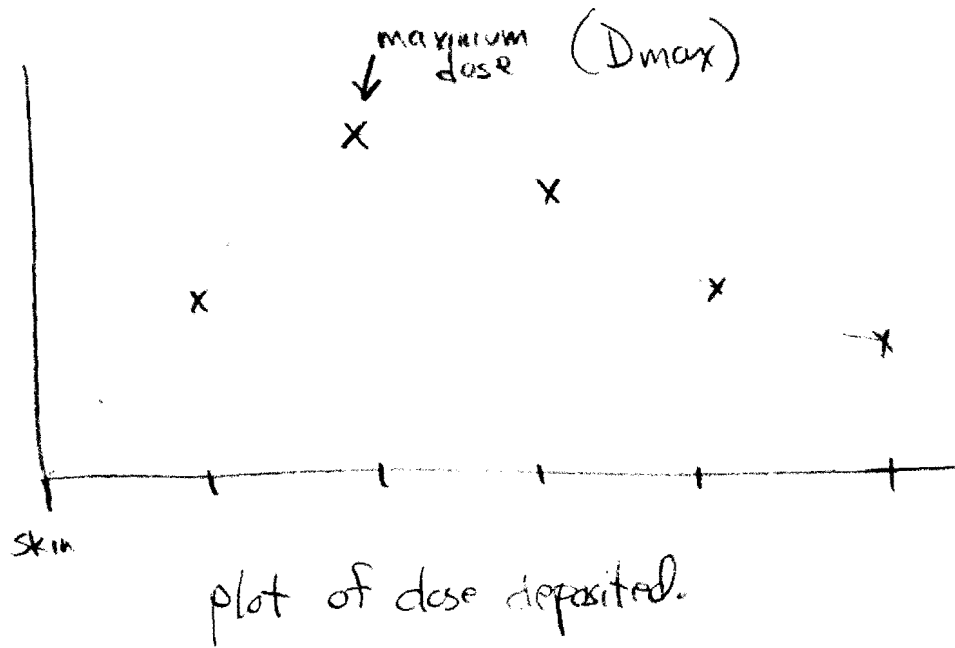 maximum (Dmax)
dose
skin
plot of dose deposited.